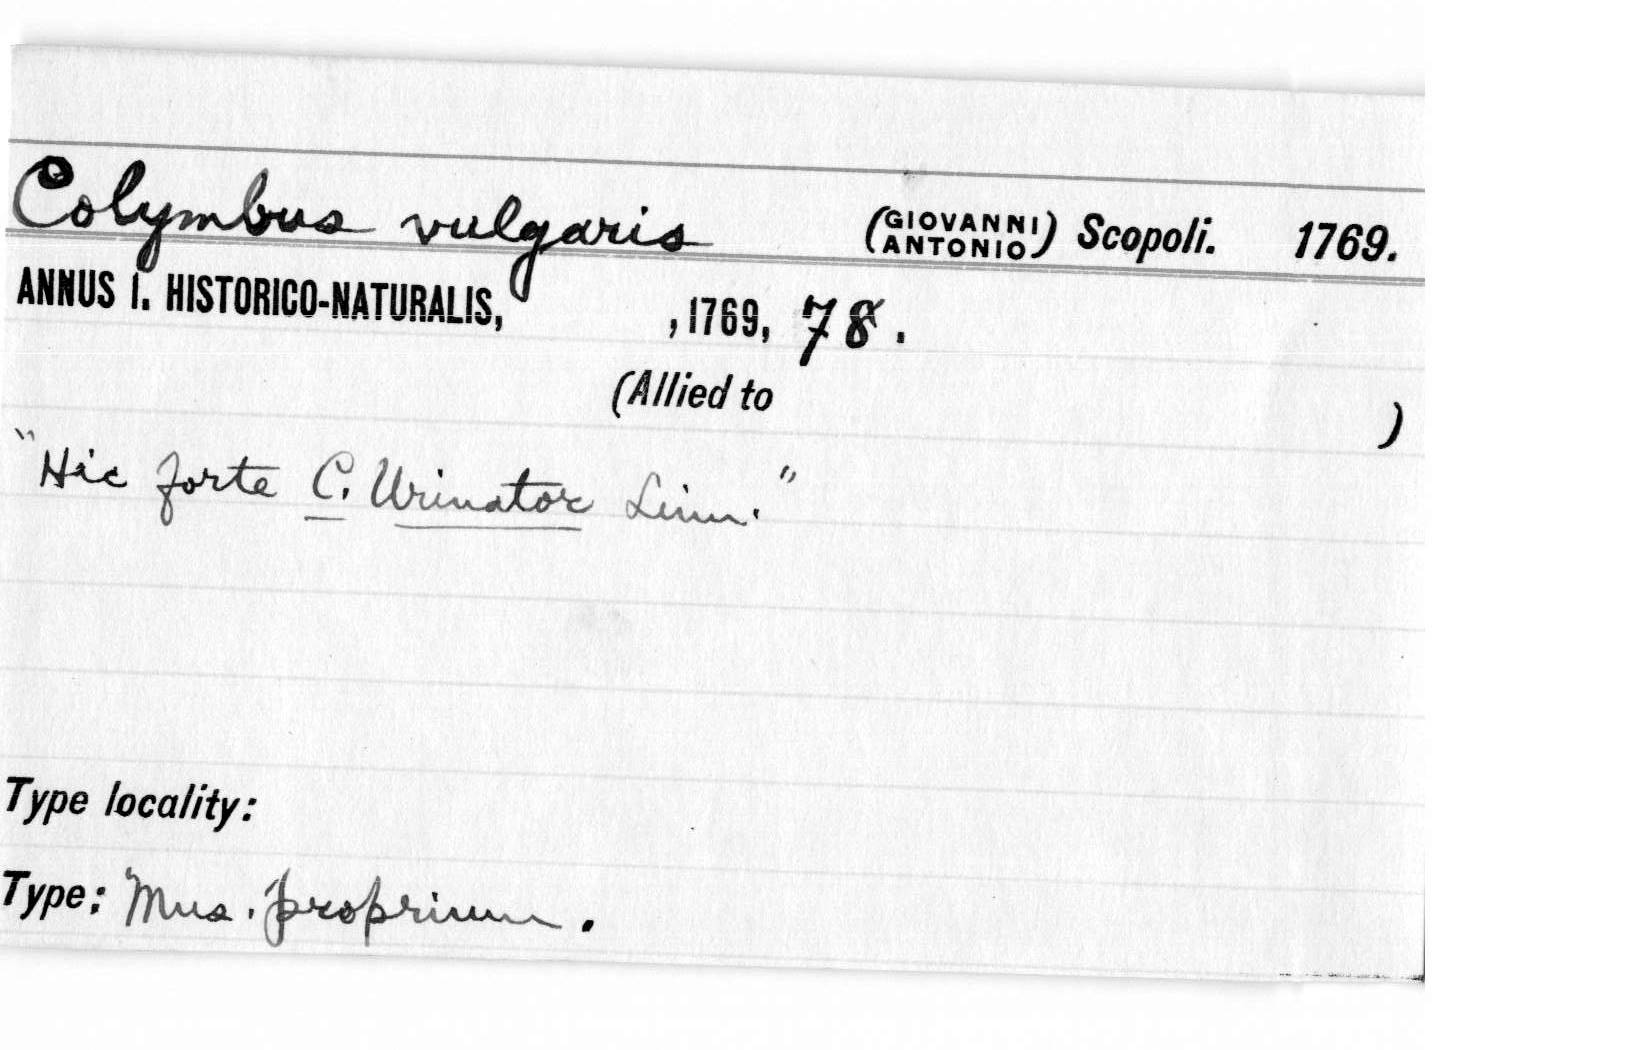 Colymbus vulgaris (GIOVANNI ANTONIO) Scopoli. 1769.
ANNUS I. HISTORICO-NATURALIS, , 1769, 78.
(Allied to )
"Hic forte C. Urinator Linn."
Type locality:
Type: Mus. proprium.